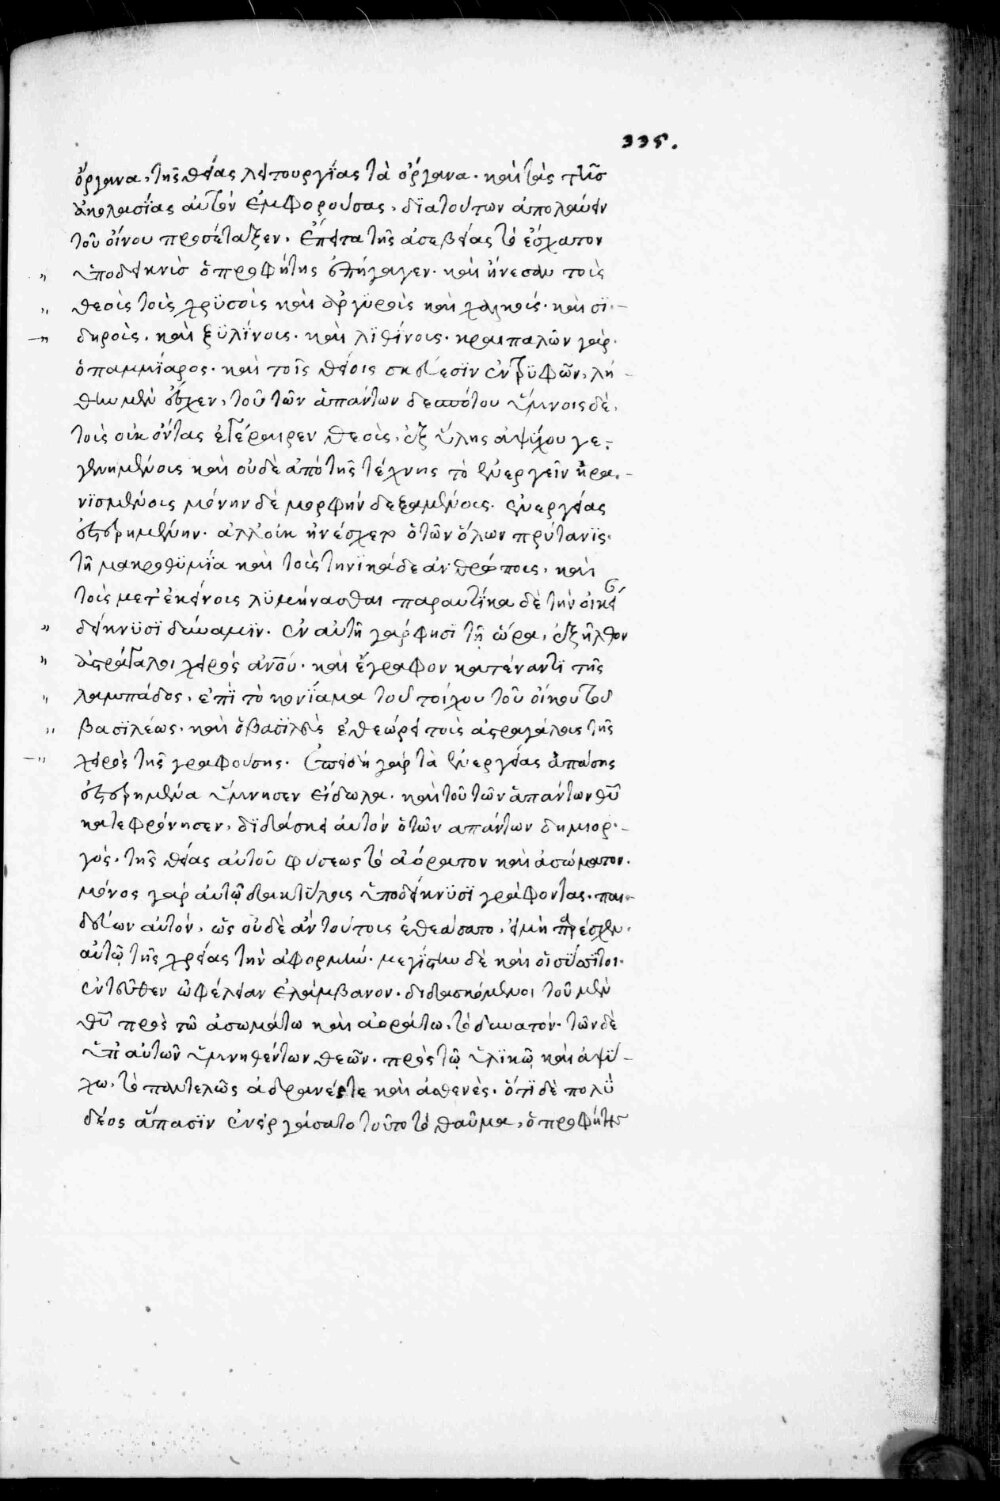 335.
ὄργανα, τῆς θείας λειτουργίας τὰ ὄργανα· καὶ τὰς τῆς
ἀκολασίας αὐτὸν ἐμφορούσας, διατούτων ἀπολαύειν
τοῦ οἴνου προσέταξεν. ἔπειτα τῆς ἀσεβείας τὸ ἔσχατον
ὑποδεικνὺς ὁ προφήτης ἐπήγαγεν· καὶ ἤνεσαν τοὺς
θεοὺς τοὺς χρϋσοὺς καὶ ἀργϋροὺς καὶ χαλκούς· καὶ σϊ-
δηροὺς, καὶ ξϋλΐνους· καὶ λϊθίνους· κραιπαλῶν γὰρ
ὁ παμμΐαρος· καὶ τοῖς θείοις σκεύεσϊν ἐντρϋφῶν, λή-
θην μὲν εἶχεν, τοῦ τῶν ἁπάντων δεσπότου ὕμνοις δὲ,
τοὺς οὐκ ὄντας ἐγέραιρεν θεοὺς, ἐξ ὕλης ἀψύχου γε-
γενημένους καὶ οὐδὲ ἀπὸ τῆς τέχνης τὸ ἐνεργεῖν ἠρα-
νϊσμένους μόνην δὲ μορφὴν δεξαμένους· ἐνεργείας
ἐστερημένην· ἀλλ' οὐκ ἠνέσχετο ὁ τῶν ὅλων πρύτανϊς·
τῆ μακροθϋμΐα καὶ τοὺς τηνϊκάδε ἀνθρώπους, καὶ
τοὺς μετ' ἐκείνους λϋμήνασθαι παραυτΐκα δὲ τὴν οἰκεί
δείκνυσϊ δύναμϊν. ἐν αὐτῆ γάρ φησϊ τῆ ὥρα, ἐξῆλθον
ἀστράγαλοι χειρὸς ἀνοῦ· καὶ ἔγραφον κατέναντϊ τῆς
λαμπάδος, ἐπῒ τὸ κονΐαμα τοῦ τοίχου τοῦ οἴκου τοῦ
βασϊλέως· καὶ ὁ βασϊλεὺς ἐθεώρει τοὺς ἀστραγάλους τῆς
χειρὸς τῆς γραφούσης. ἐπειδὴ γὰρ τὰ ἐνεργείας ἁπάσης
ἐστερημένα ὕμνησεν εἴδωλα· καὶ τοῦ τῶν ἁπάντων θῦ
κατεφρόνησεν, δϊδάσκει αὐτὸν ὁ τῶν ἁπάντων δημιορ-
γὸς· τῆς θείας αὐτοῦ φύσεως τὸ ἀόρατον καὶ ἀσώματον.
μόνους γὰρ αὐτῷ δακτύλους ὑποδείκνϋσϊ γράφοντας· παι-
δεύων αὐτόν, ὡς οὐδὲ ἂν τούτους ἐθεάσατο, εἰ μὴ παρέσχεν
αὐτῷ τῆς χρείας τὴν ἀφορμήν· μεγίστην δὲ καὶ οἱ σύσσϊτοι
ἐντεῦθεν ὠφέλειαν ἐλάμβανον· διδασκόμενοι τοῦ μὲν
θῦ πρὸς τῶ ἀσωμάτω καὶ ἀοράτω, τὸ δυνατόν· τῶν δὲ
ὑπ' αὐτῶν ὑμνηθέντων θεῶν· πρὸς τῷ ὑλϊκῷ καὶ ἀψύ-
χω, τὸ παντελῶς ἀδρανέστε καὶ ἀσθενές· ὅτϊ δὲ πολὺ
δέος ἅπασϊν ἐνεργάσατο τοῦτο τὸ θαῦμα, ὁ προφήτης